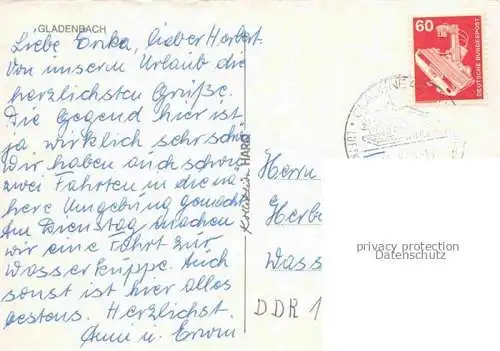 GLADENBACH
Liebe Erika, lieber Herbert.
Von unserem Urlaub die
herzlichsten Grüße.
Die Gegend hier ist
ja wirklich sehr schön
Wir haben auch schon
zwei Fahrten in die nä
here Umgebung gemacht
Am Dienstag machen
wir eine Fahrt zur
Wasserkuppe. Auch
sonst ist hier alles
bestens. Herzlichst.
Anni u. Erwin
HARO
60
DEUTSCHE BUNDESPOST
Herrn
Herbe
Wass
DDR 1
privacy protection
Datenschutz